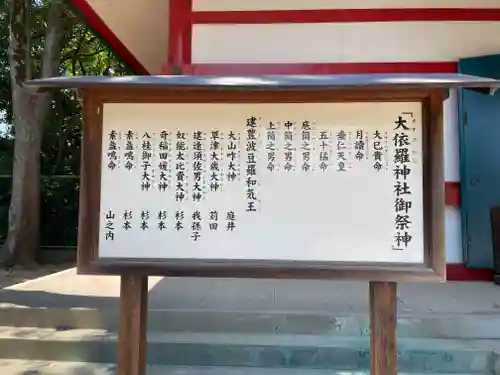 「大依羅神社御祭神」
大己貴命
月讀命
垂仁天皇
五十猛命
底筒之男命
中筒之男命
上筒之男命
建豊波豆羅和気王
大山咋大神 庭井
草津大歳大神 苅田
建速須佐男大神 我孫子
奴能太比賣大神 杉本
奇稲田媛大神 杉本
八柱御子大神 杉本
素盞嗚命 杉本
素盞嗚命 山之内